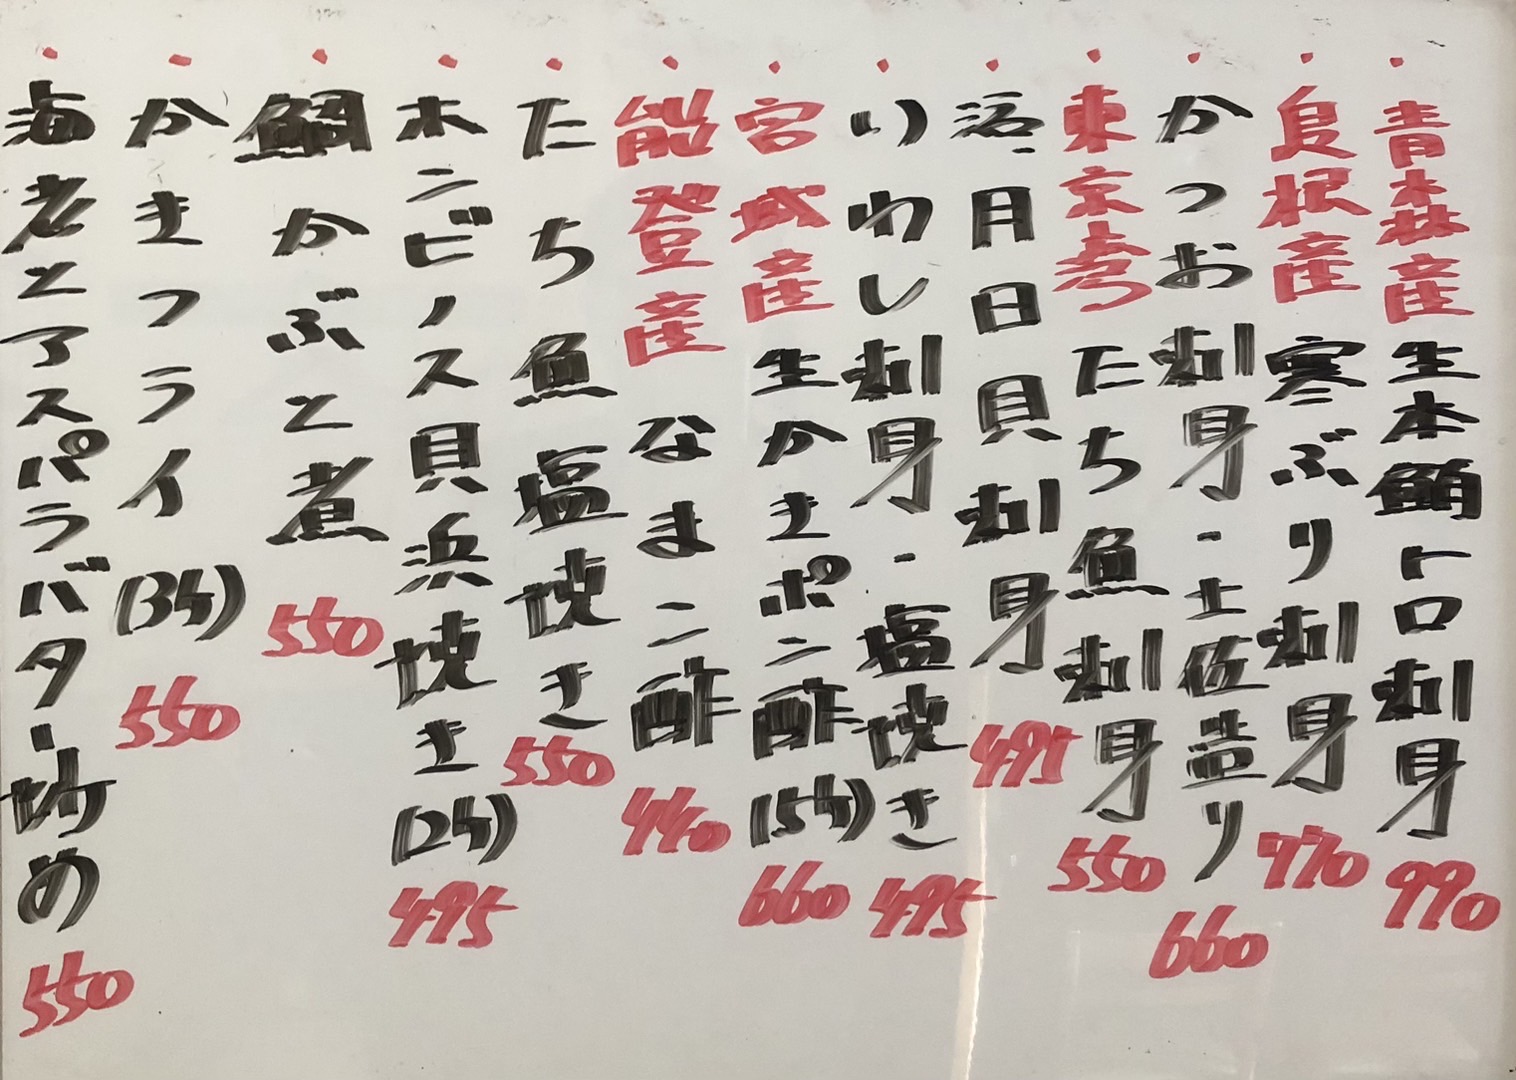 ・青森産生本鮪トロ刺身 990
・島根産寒ぶり刺身 770
・かつお刺身・土佐造り 660
・東京湾たち魚刺身 550
・活月日貝刺身 495
・いわし刺身・塩焼き 495
・宮城産生かきポン酢(5ケ) 660
・能登産なまこ酢 440
・たち魚塩焼き 550
・ホンビノス貝浜焼き(2ケ) 495
・鯛かぶと煮 550
・かきフライ(3ケ) 550
・海老とアスパラバター炒め 550